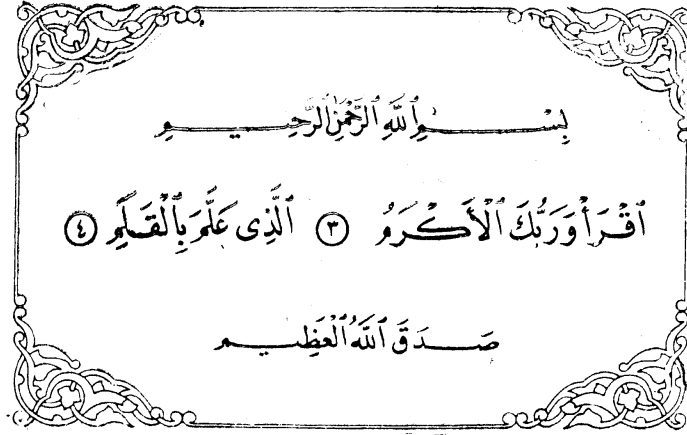 بِسْمِ ٱللَّهِ ٱلرَّحْمَٰنِ ٱلرَّحِيمِ
ٱقْرَأْ وَرَبُّكَ ٱلْأَكْرَمُ ٣ ٱلَّذِى عَلَّمَ بِٱلْقَلَمِ ٤
صَدَقَ ٱللَّهُ ٱلْعَظِيمُ